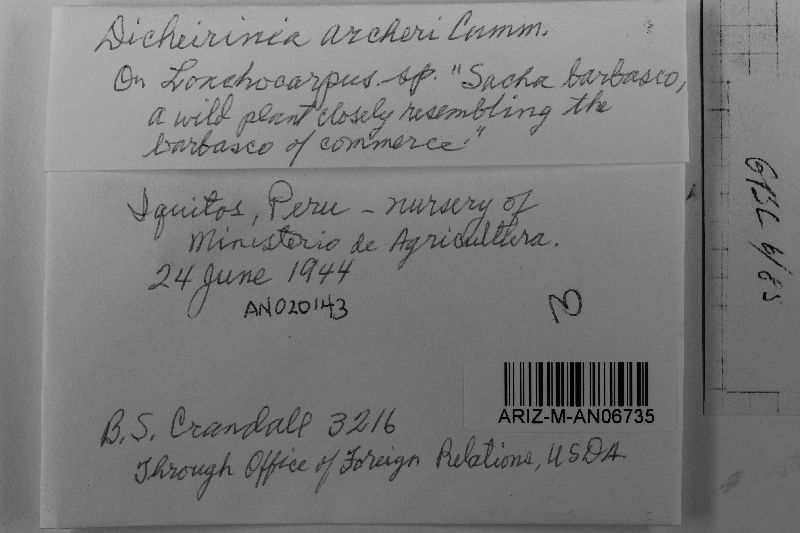 Dicheirinia archeri Cumm.
On Lonchocarpus sp. "Sacha barbasco,
a wild plant closely resembling the
barbasco of commerce."
Iquitos, Peru - nursery of
Ministerio de Agricultura.
24 June 1944
AN020143
B
ARIZ-M-AN06735
B.S. Crandall 3216
Through Office of Foreign Relations, USDA
GBC 6/85